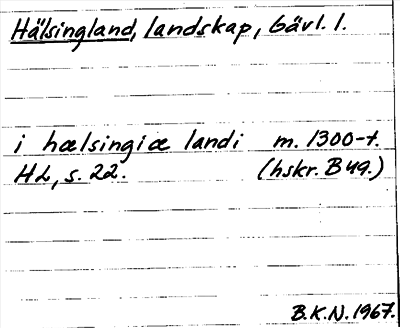 Hälsingland, landskap, Gävl. l.
i hælsingiæ landi m. 1300-t.
HL, s. 22. (hskr. B 49.)
B.K.N. 1967.